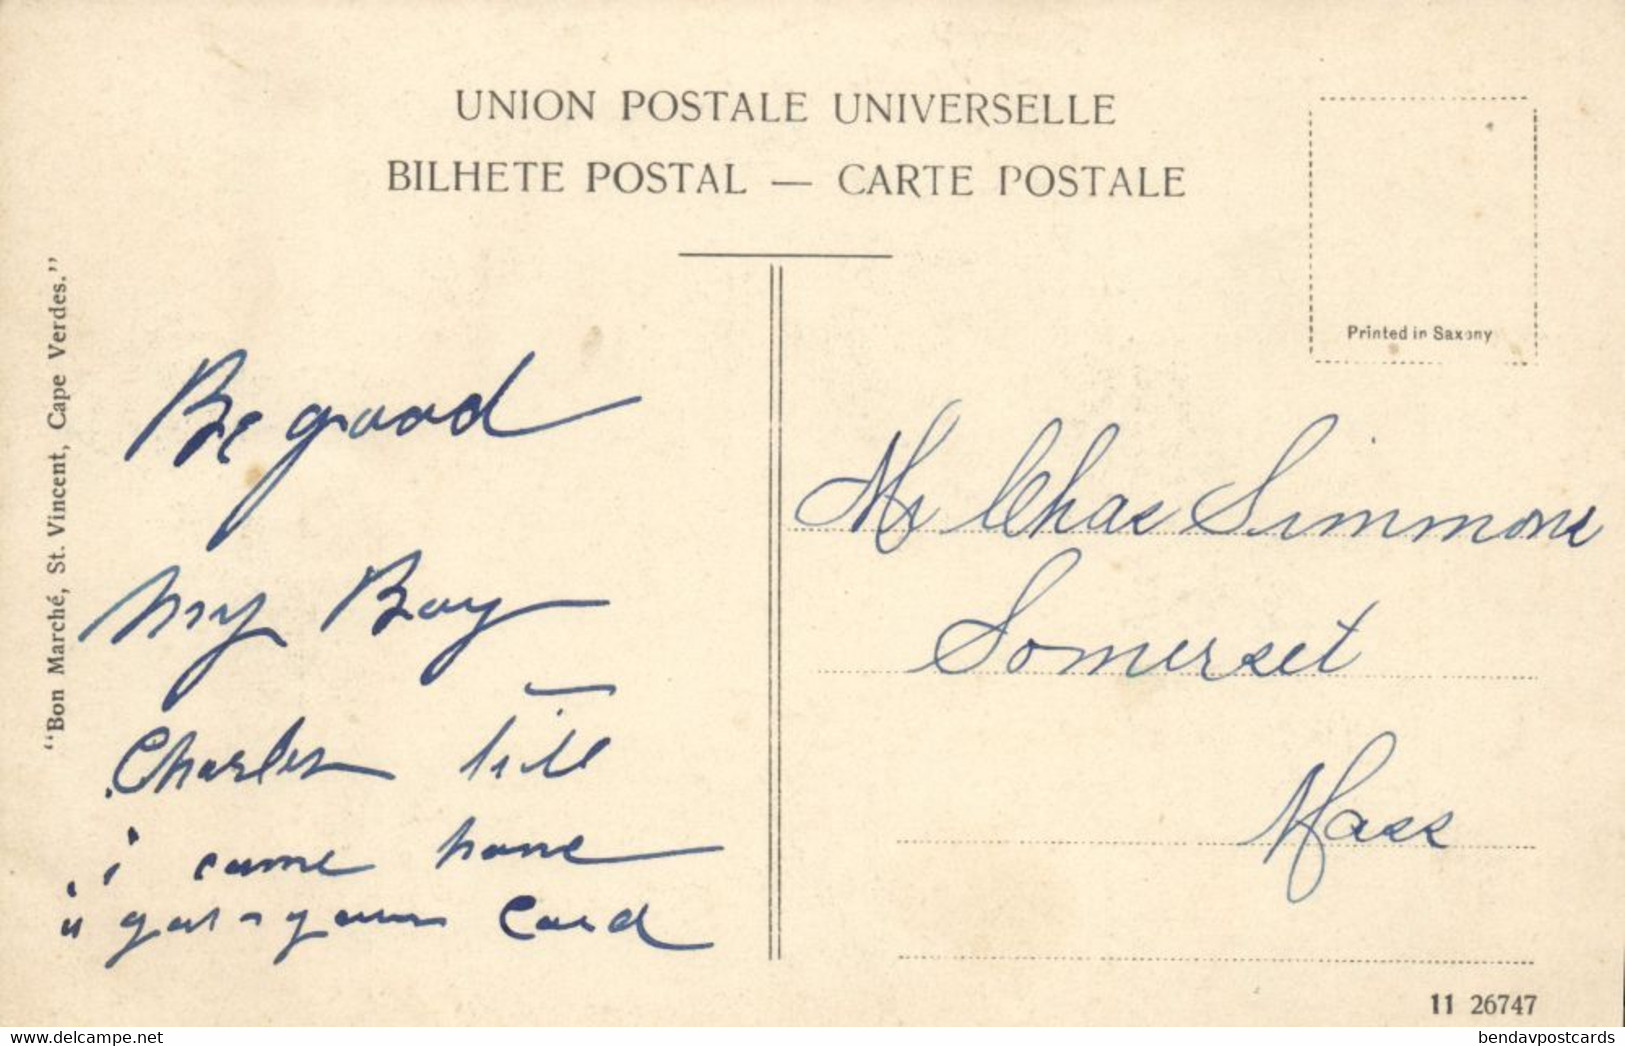 UNION POSTALE UNIVERSELLE
BILHETE POSTAL — CARTE POSTALE
Printed in Saxony
"Bon Marché, St. Vincent, Cape Verdes."
Be good
My Boy
Charles till
i came home
i got your Card
Mr Chas Simmons
Somerset
Mass
11 26747
www.delcampe.net
bendavpostcards